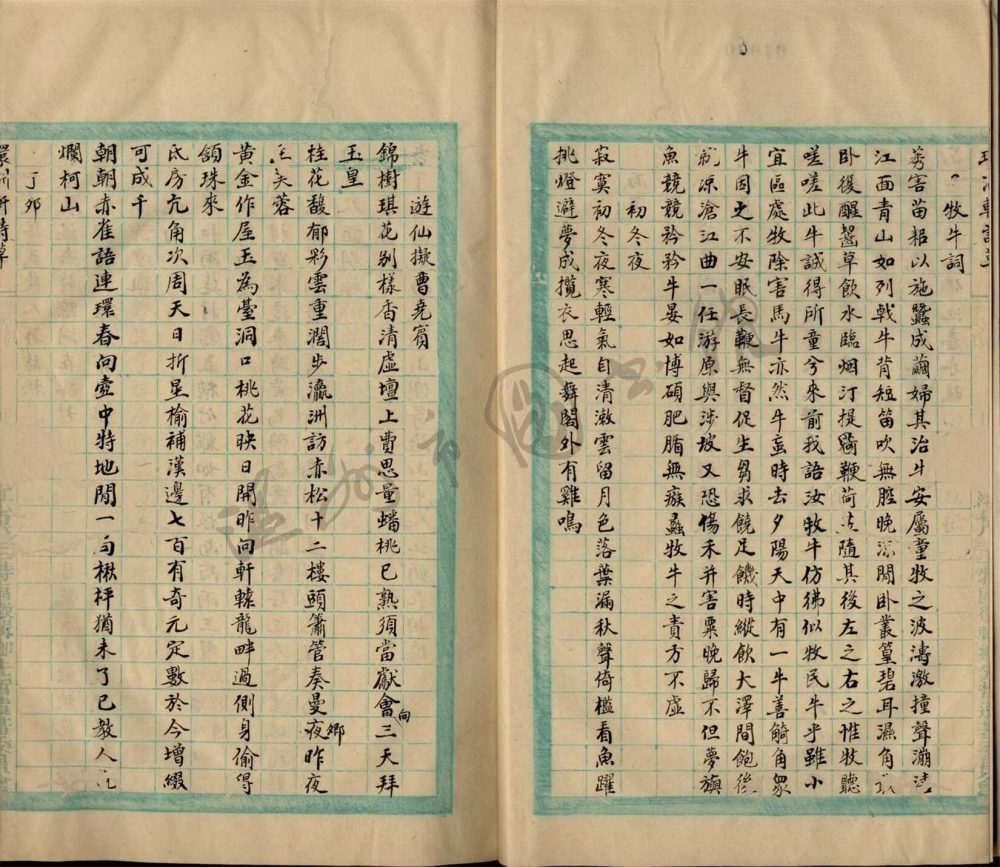 牧牛詞
莠害苗耜以施蠶成繭婦其治牛安屬童牧之波濤激撞聲漰
江面青山如列戟牛背短笛吹無腔晚涼閒臥叢篁碧耳濕角
臥後醒齧草飲水臨烟汀提筠鞭荷隨其後左之右之惟牧聽
嗟嗟此牛誠得所童兮來前我語汝牧牛仿彿似牧民牛乎雖小
宜區處牧除害馬牛亦然牛宜時去夕陽天中有一牛善觸角眾
牛因之不安眠長鞭無督促生芻求饒足饑時縱飲大澤間飽後
就源滄江曲一任游原與涉坡又恐傷禾并害粟晚歸不但夢旟
魚競競矜矜牛晏如博碩肥腯無瘯蠡牧牛之責方不虛
初冬夜
寂寞初冬夜寒輕氣自清漱雲留月色落葉漏秋聲倚檻看魚躍
挑燈避夢成攬衣思起舞閣外有雞鳴
遊仙擬曹堯賓
錦樹琪花別樣香清虛壇上費思量蟠桃已熟須當獻會向三天拜
玉皇
桂花馥郁彩雲重濶步瀛洲訪赤松十二樓頭簫管奏曼鄉夜昨夜
芙蓉
黃金作屋玉為臺洞口桃花映日開昨向軒轅龍畔過側身偷得
頷珠來
氐房亢角次周天日折星榆補漢邊七百有奇元定數於今增綴
可成千
朝朝赤雀語連環春向壺中特地閒一局楸枰猶未了已教人
爛柯山
丁卯